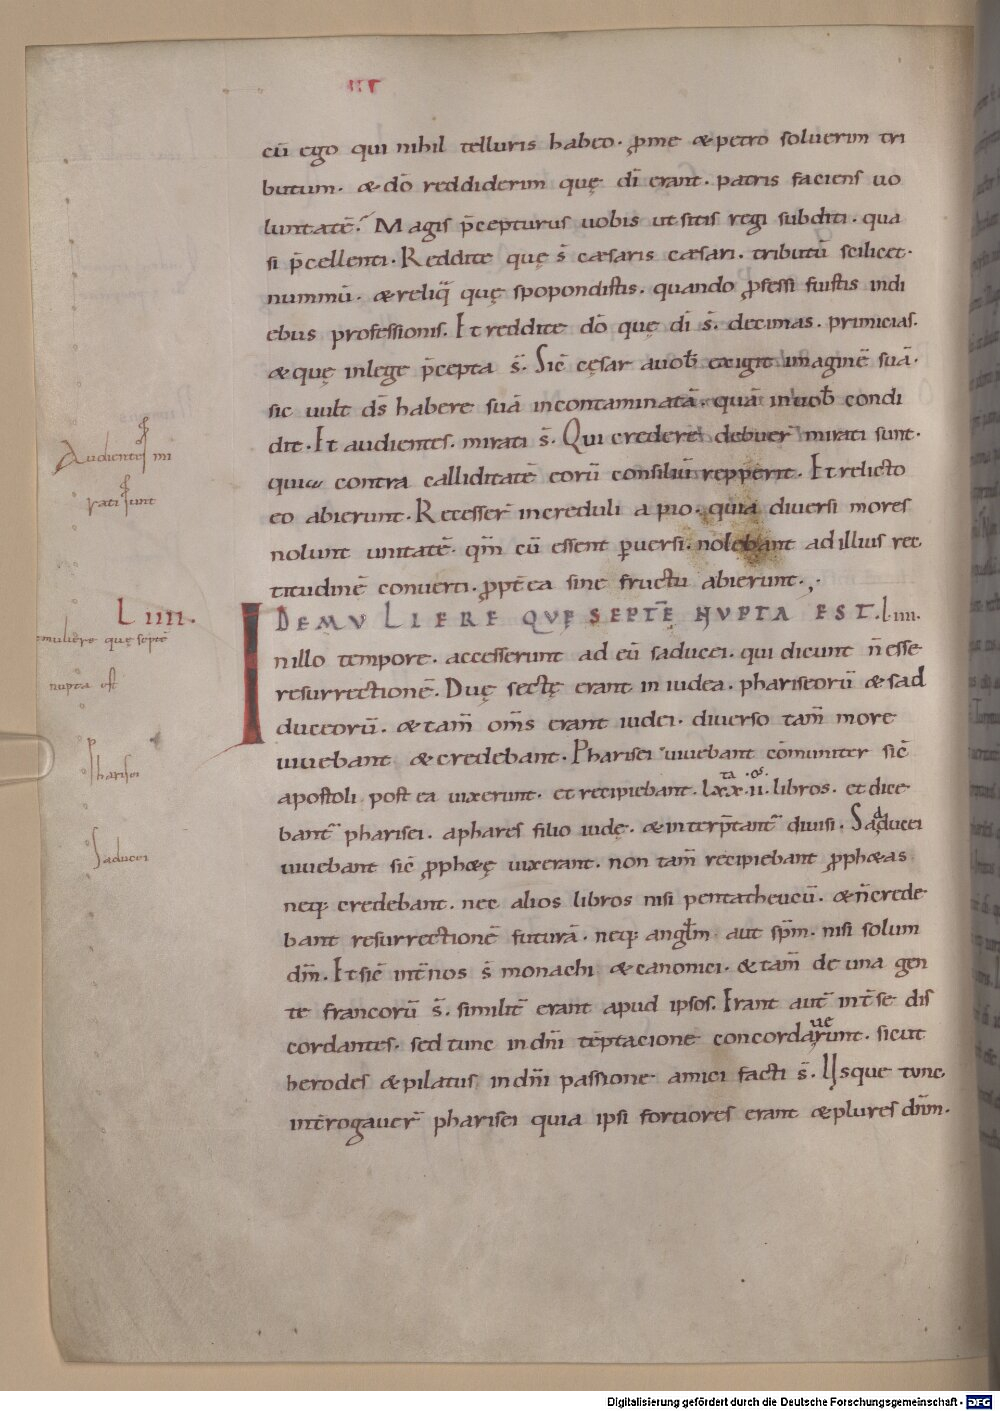 cū ego qui nihil telluris habeo. ꝓme & petro soluerim tri
butum. & dō reddiderim quę dī erant. patris faciens uo
luntatē. Magis p̄cepturus uobis ut sitis regi subditi. qua
si p̄cellenti. Reddite quę s̄ cæsaris cæsari. tributū scilicet.
nummū. & reliq̄ quę spopondistis. quando ꝓfessi fuistis indi
ebus professionis. Et reddite dō quę dī s̄. decimas. primicias.
& quę inlege p̄cepta s̄. Sic̄ cęsar auob̄ exigit imaginē suā.
sic uult ds̄ habere suā incontaminatā. quā inuob̄ condi
dit. Et audientes. mirati s̄. Qui credere debuer̄ mirati sunt.
quia contra calliditatē eorū consiliū repperit. Et relicto
eo abierunt. Recesser̄ increduli a pio. quia diuersi mores
nolunt unitatē. qm̄ cū essent ꝑuersi. nolebant ad illius rec
titudinē conuerti. ꝓpt̄ea sine fructu abierunt.
DEMULIERE QUĘ SEPTĒ NUPTA EST. L IIII.
Inillo tempore. accesserunt ad eū saducei. qui dicunt n̄ esse
resurrectionē. Duę sectę erant in iudea. phariseorū & sad
duceorū. & tam̄ om̄s erant iudei. diuerso tam̄ more
uiuebant & credebant. Pharisei uiuebant cōmuniter sic̄
apostoli post ea uixerunt. et recipiebant. lxx.ii. libros. et dice
bant̄ pharisei. a phares filio iudę. & interp̄tant̄ diuisi. Sadducei
uiuebant sic̄ ꝓph&ę uixerant. non tam̄ recipiebant ꝓph&as
neq; credebant. nec alios libros nisi pentatheucū. & n̄ crede
bant resurrectionē futurā. neq; angl̄m aut sp̄m. nisi solum
dm̄. Et sic̄ int̄ nos s̄ monachi & canonici. & tam̄ de una gen
te francorū s̄. similit̄ erant apud ipsos. Erant aut̄ int̄ se dis
cordantes. sed tunc in dn̄i tēptacione concordauerunt. sicut
herodes & pilatus in dn̄i passione amici facti s̄. Usque tunc
int̄rogauer̄ pharisei quia ipsi fortiores erant & plures dn̄m.
Audientes mi
rati sunt
L IIII.
muliere quę septē
nupta est
Pharisei
Saducei
Digitalisierung gefördert durch die Deutsche Forschungsgemeinschaft - DFG